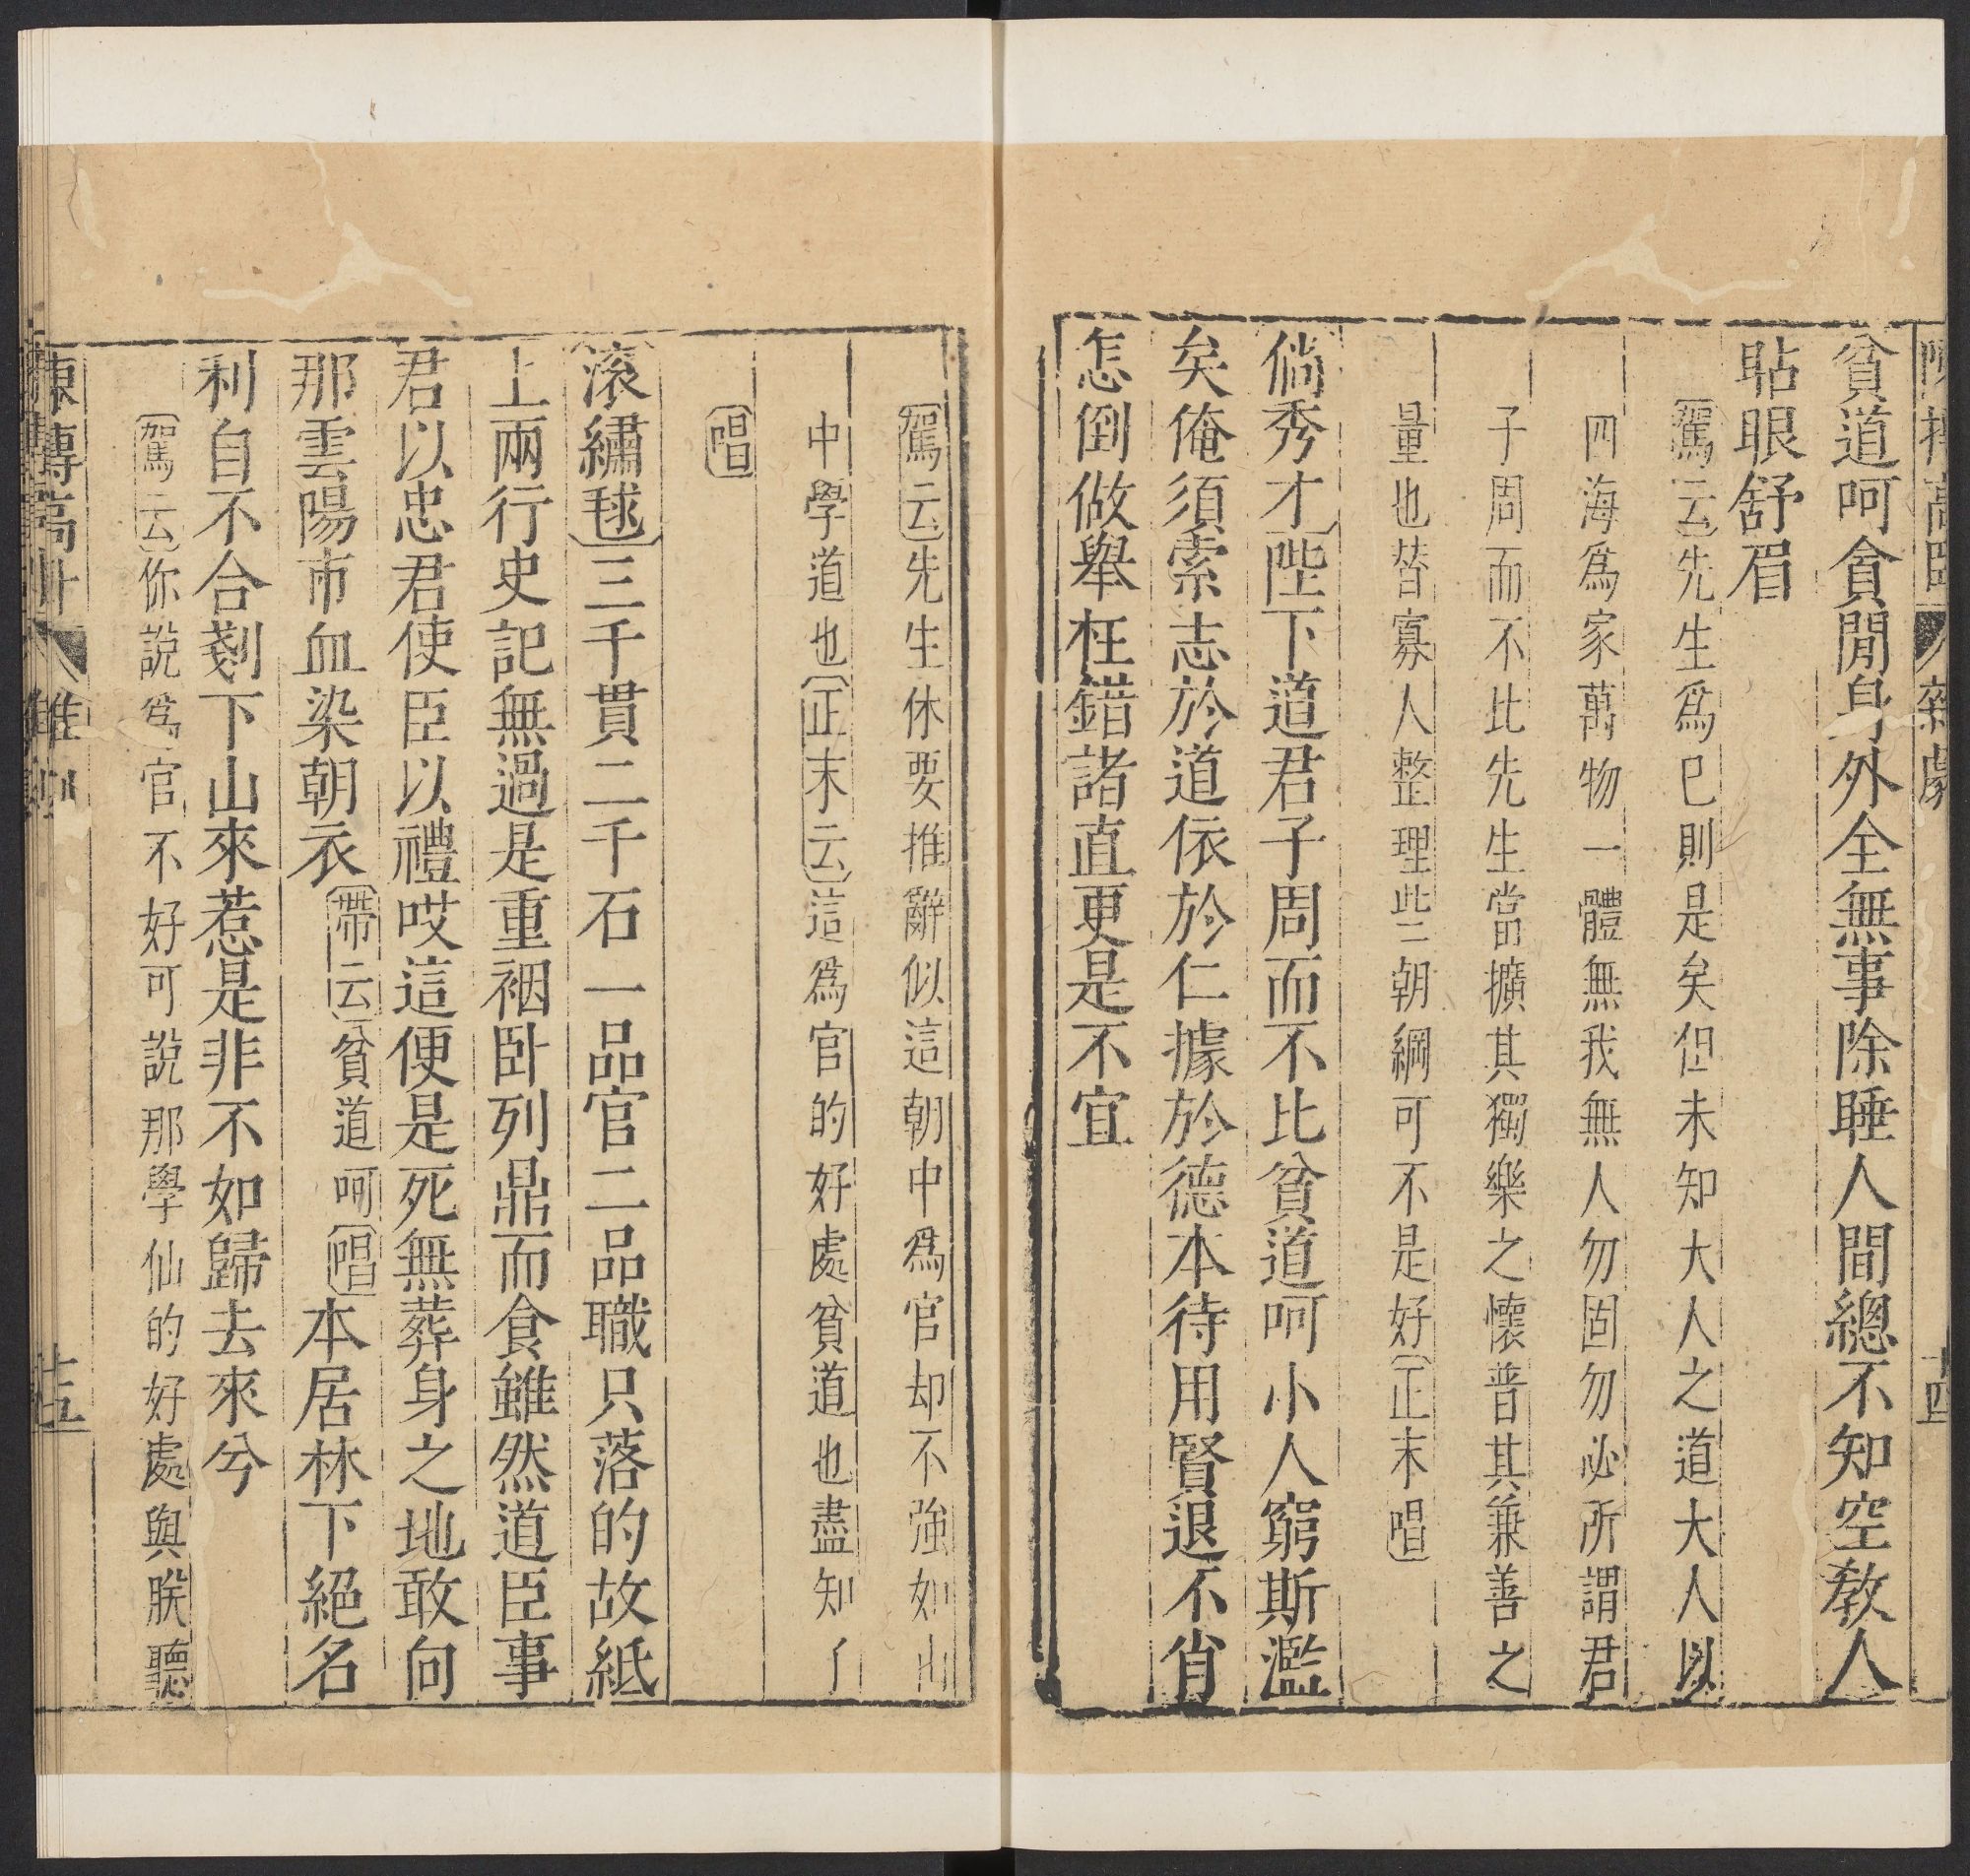 貧道呵貪閒身外全無事除睡人間總不知空教人
貼眼舒眉
〔駕云〕先生爲已則是矣但未知大人之道大人以
四海爲家萬物一體無我無人勿固勿必所謂君
子周而不比先生當擴其獨樂之懷普其兼善之
量也替寡人整理些三朝綱可不是好〔正末唱〕
倘秀才〕陛下道君子周而不比貧道呵小人窮斯濫
矣俺須索志於道依於仁據於德本待用賢退不肖
怎倒做舉枉錯諸直更是不宜
〔駕云〕先生休要推辭似這朝中爲官却不強如山
中學道也〔正末云〕這爲官的好處貧道也盡知了
〔唱〕
〔滚繡毬〕三千貫二千石一品官二品職只落的故紙
上兩行史記無過是重裀卧列鼎而食雖然道臣事
君以忠君使臣以禮哎這便是死無葬身之地敢向
那雲陽市血染朝衣〔帶云〕貧道呵〔唱〕本居林下絕名
利自不合剗下山來惹是非不如歸去來兮
〔駕云〕你說爲官不好可說那學仙的好處與朕聽